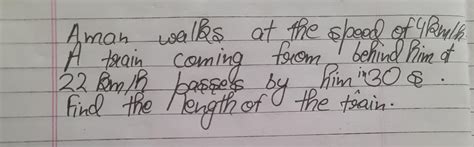 A man walks at the speed of 4km/h
A train coming from behind him at
22 km/h passes by him in 30 s.
find the length of the train.